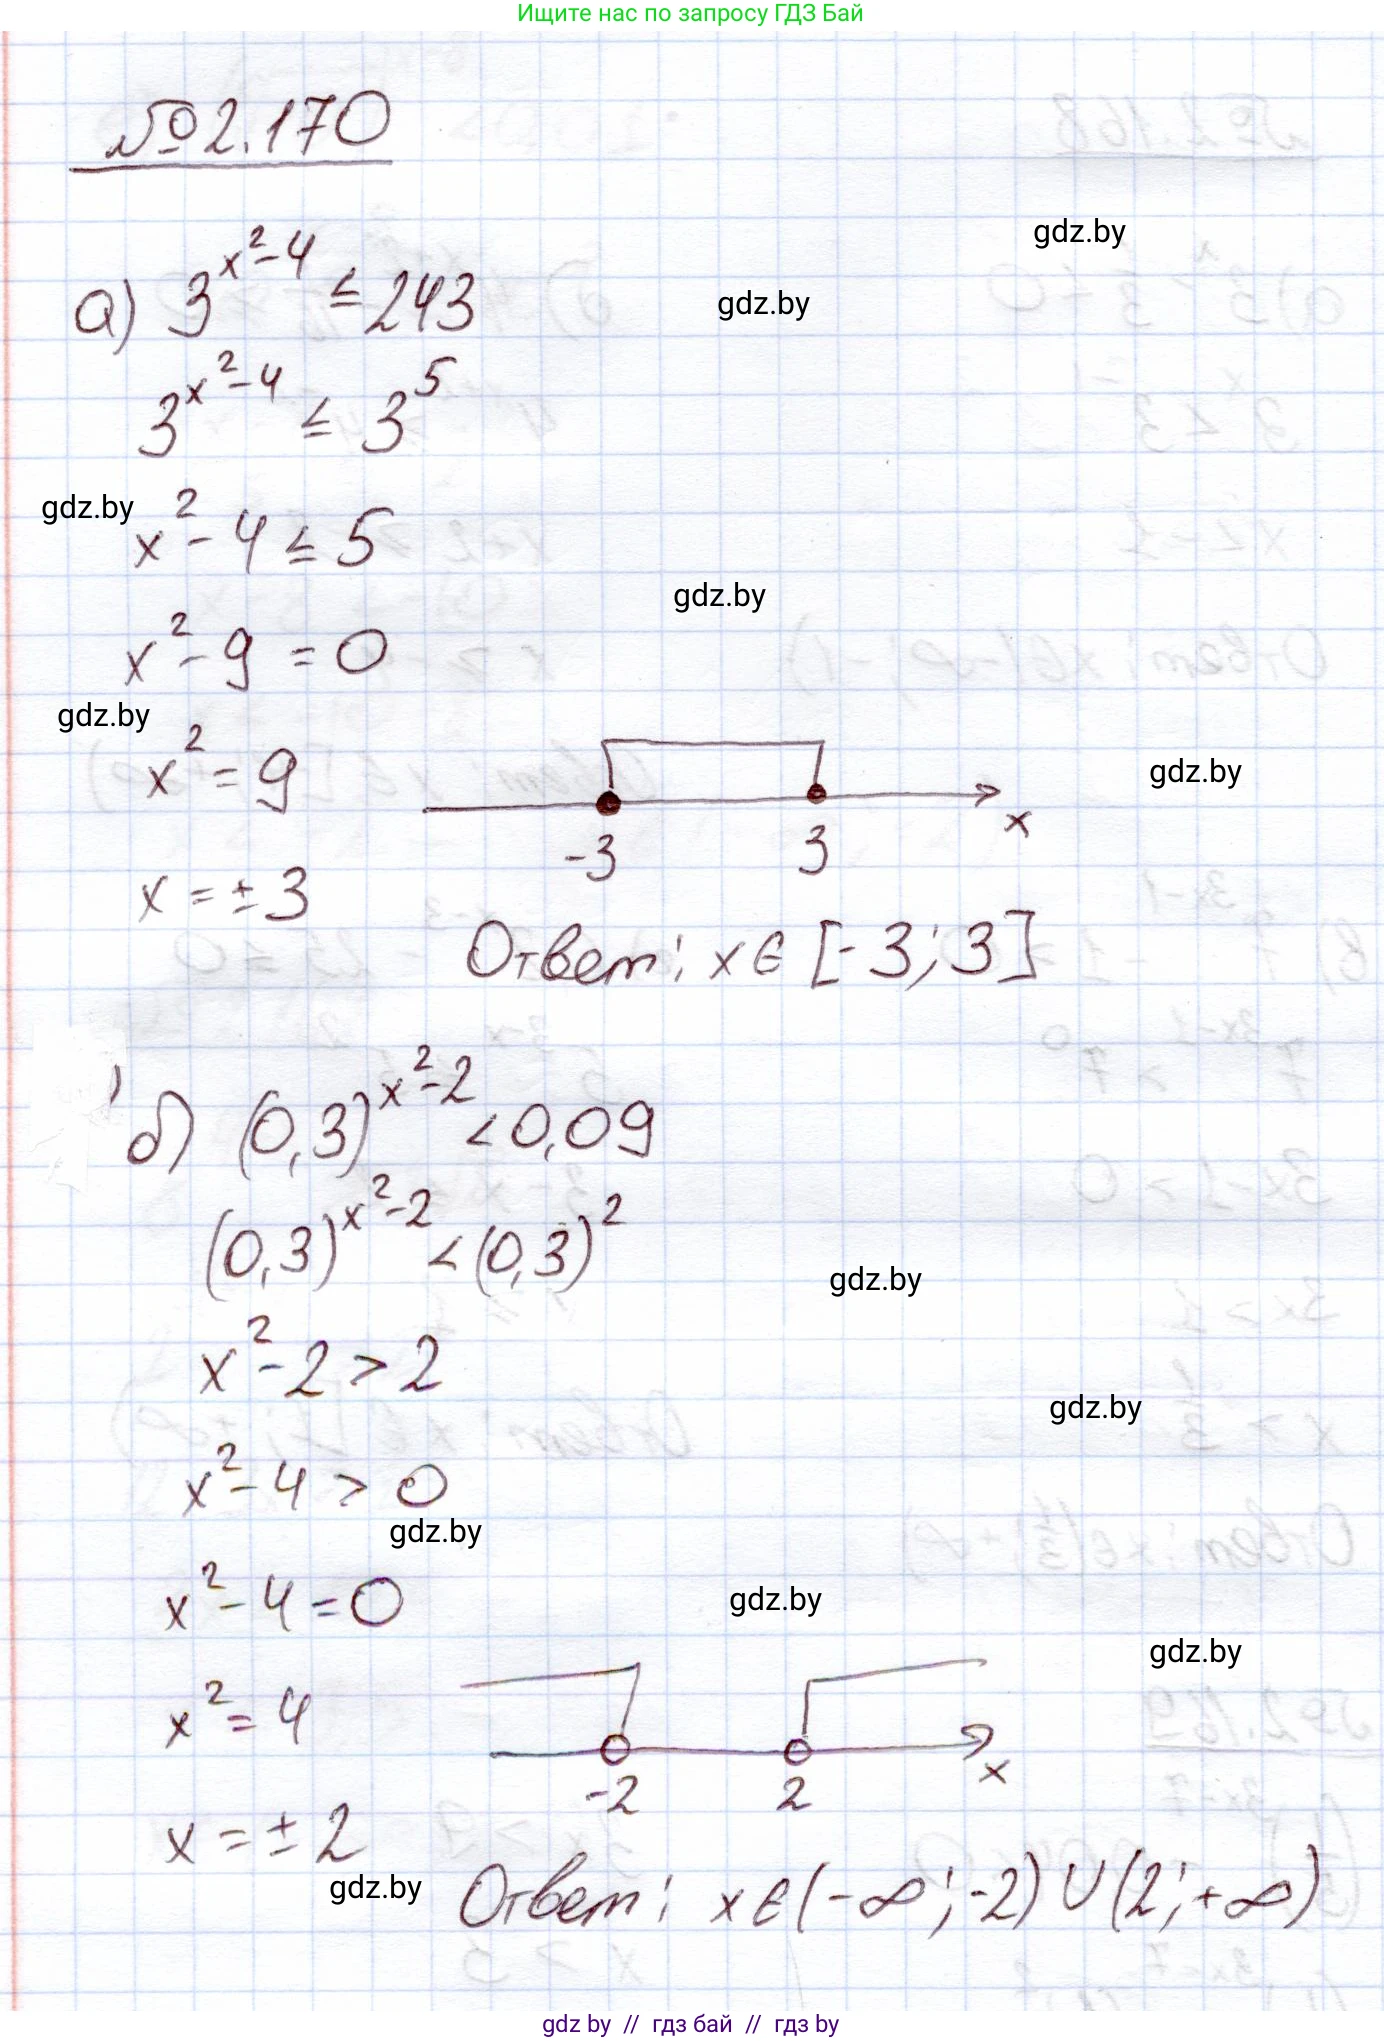 Ищите нас по запросу ГДЗ Бай
№2.170
gdz.by
а) 3^{x²-4} ≤ 243
gdz.by
3^{x²-4} ≤ 3^5
gdz.by
x² - 4 ≤ 5
gdz.by
x² - 9 = 0
gdz.by
x² = 9
gdz.by
-3 3 x
x = ± 3
Ответ: x ∈ [-3; 3]
б) (0,3)^{x²-2} < 0,09
(0,3)^{x²-2} < (0,3)²
gdz.by
x² - 2 > 2
gdz.by
x² - 4 > 0
gdz.by
x² - 4 = 0
gdz.by
gdz.by
x² = 4
-2 2 x
x = ± 2
gdz.by
Ответ: x ∈ (-∞; -2) ∪ (2; +∞)
gdz by // гдз бай // гдз by